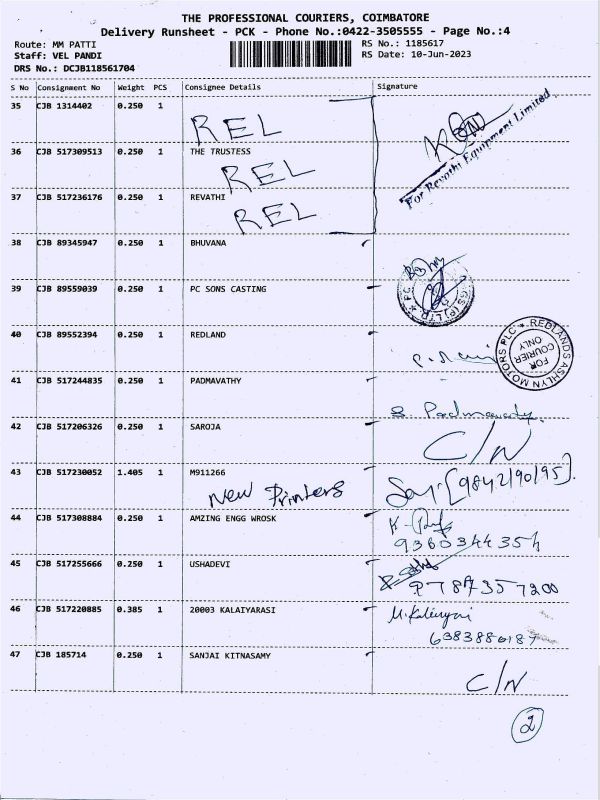 THE PROFESSIONAL COURIERS, COIMBATORE
Delivery Runsheet - PCK - Phone No.:0422-3505555 - Page No.:4
Route: MM PATTI RS No.: 1185617
Staff: VEL PANDI RS Date: 10-Jun-2023
DRS No.: DCJB118561704
S No Consignment No Weight PCS Consignee Details Signature
35 CJB 1314402 0.250 1
REL
For Revathi Equipment Limited
36 CJB 517309513 0.250 1 THE TRUSTESS
REL
37 CJB 517236176 0.250 1 REVATHI
REL
38 CJB 89345947 0.250 1 BHUVANA
39 CJB 89559039 0.250 1 PC SONS CASTING
40 CJB 89552394 0.250 1 REDLAND
REDLANDS ASHLYN MOTORS PLC
FOR COURIER ONLY
41 CJB 517244835 0.250 1 PADMAVATHY
S. Padmavathy
42 CJB 517206326 0.250 1 SAROJA
C/N
43 CJB 517230052 1.405 1 M911266
New Printers [9842190195].
44 CJB 517308884 0.250 1 AMZING ENGG WROSK
9360344354
45 CJB 517255666 0.250 1 USHADEVI
9787357200
46 CJB 517220885 0.385 1 20003 KALAIYARASI
6383880187
47 CJB 185714 0.250 1 SANJAI KITNASAMY
C/N
2